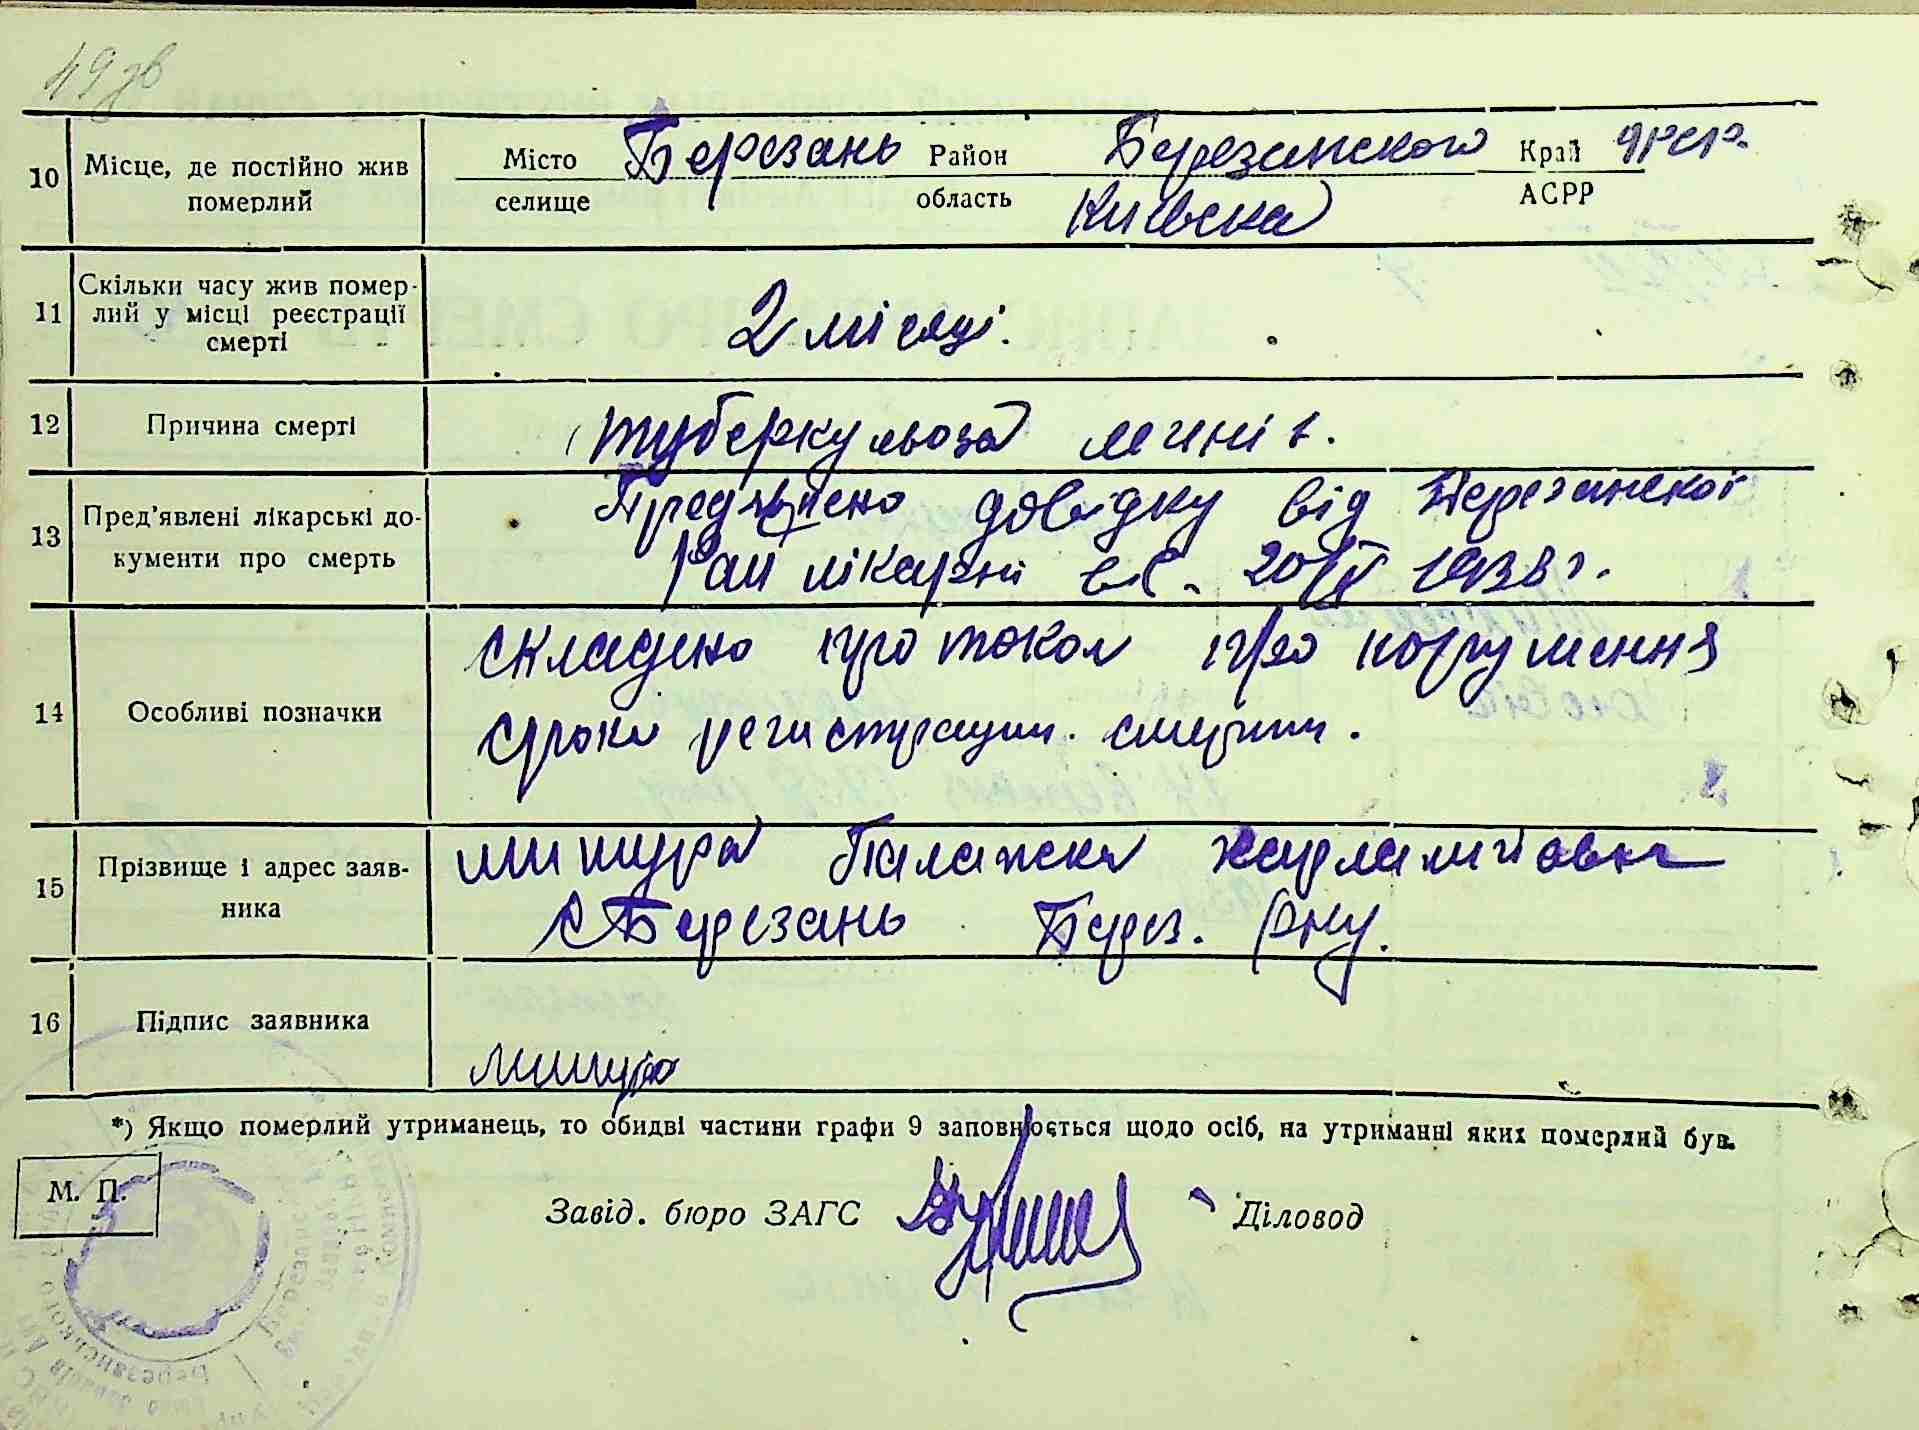 49 зв
10 Місце, де постійно жив померлий
Місто Березань Район Березанского Край УРСР.
селище область Київска АСРР
11 Скільки часу жив помер-
лий у місці реєстрації
смерті
2 місяці.
12 Причина смерті
туберкульоза
13 Пред'явлені лікарські до-
кументи про смерть
довідку від Березанскої
Рай лікарні 20/IV 1938 г.
14 Особливі позначки
складено протокол про порушення
срока регистрации смерти.
15 Прізвище і адрес заяв-
ника
Мишура Палажка Харлампіовна
с Березань Берез. рну.
16 Підпис заявника
Мишура
*) Якщо померлий утриманець, то обидві частини графи 9 заповнюється щодо осіб, на утриманні яких померлий був.
М. П.
Завід. бюро ЗАГС Діловод